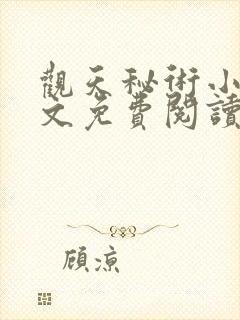 觀天秘術小
文免費閱讀
顧涼